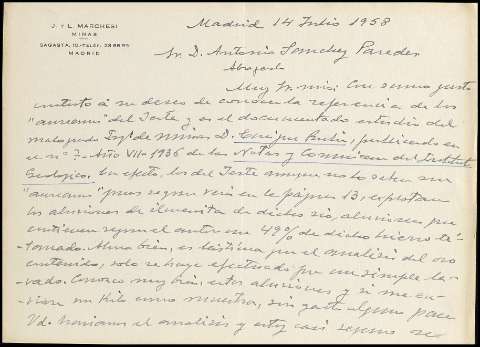 J. Y L. MARCHESI
MINAS
SAGASTA, 10.-TELEF.
MADRID
Madrid 14 Julio 1958
Sr. D. Antonio Sanchez Paredes
Abogado
Muy Sr. mio: Con sumo gusto
contesto a su deseo de conocer la referencia de los
"aureanos" del Torte y es el documentado estudio del
malogrado Ingº de Minas D. Enrique Rubio, publicado en
el nº 7. Año VII-1936 de las Notas y Comunicac. del Instituto
Geologico. En efecto, los del
"aureanos" pues segun verá en la página 13, explotan
los aluviones de ilmenita de dicho rio, aluviones que
contienen segun el autor un 49% de dicho hierro ti-
-tanado. Ahora bien, es lástima que el analisis del oro
contenido, solo se haya efectuado por un simple la-
-vado. Conozco muy bien, estos aluviones y si me en-
-viase un Kilo como muestra, sin gasto alguno para
Vd. hariamos el analisis y estoy casi seguro se